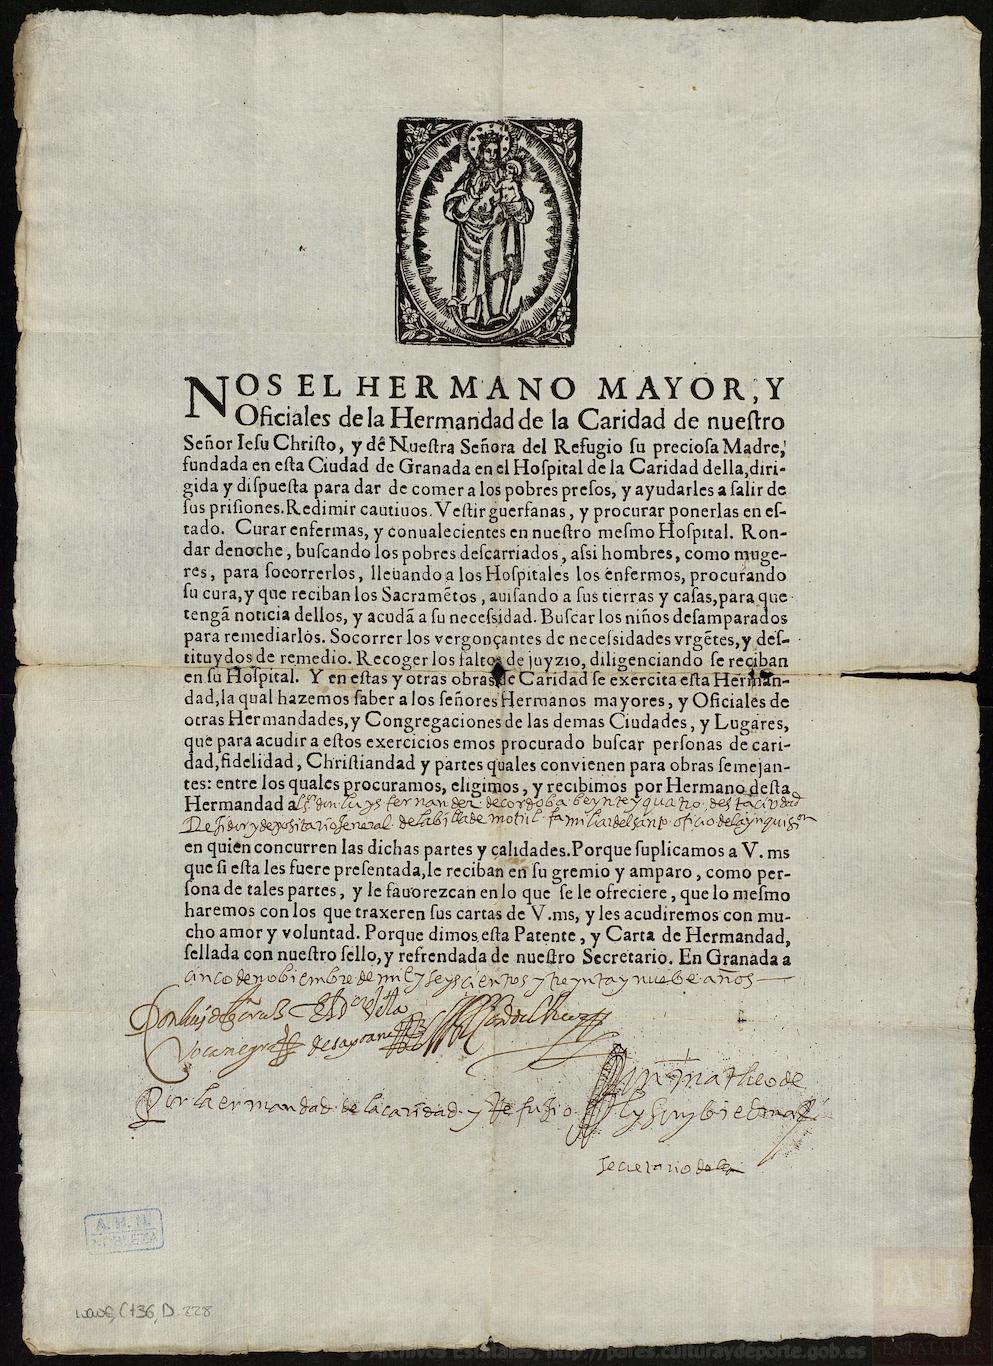 NOS EL HERMANO MAYOR, Y
Oficiales de la Hermandad de la Caridad de nuestro
Señor Iesu Christo, y dē Nuestra Señora del Refugio su preciosa Madre,
fundada en esta Ciudad de Granada en el Hospital de la Caridad della, diri-
gida y dispuesta para dar de comer a los pobres presos, y ayudarles a salir de
sus prisiones. Redimir cautiuos. Vestir guerfanas, y procurar ponerlas en es-
tado. Curar enfermas, y conualecientes en nuestro mesmo Hospital. Ron-
dar denoche, buscando los pobres descarriados, assi hombres, como muge-
res, para socorrerlos, lleuando a los Hospitales los enfermos, procurando
su cura, y que reciban los Sacramētos, auisando a sus tierras y casas, para que
tengã noticia dellos, y acudã a su necessidad. Buscar los niños desamparados
para remediarlos. Socorrer los vergonçantes de necessidades vrgētes, y des-
tituydos de remedio. Recoger los faltos de juyzio, diligenciando se reciban
en su Hospital. Y en estas y otras obras de Caridad se exercita esta Herman-
dad, la qual hazemos saber a los señores Hermanos mayores, y Oficiales de
otras Hermandades, y Congregaciones de las demas Ciudades, y Lugares,
que para acudir a estos exercicios emos procurado buscar personas de cari-
dad, fidelidad, Christiandad y partes quales convienen para obras semejan-
tes: entre los quales procuramos, eligimos, y recibimos por Hermano desta
Hermandad a don luys fernandez de cordoba beynteyquatro desta ciudad
Rejidor y depositario jeneral de la billa de motril familiar del santo oficio de la ynquision
en quien concurren las dichas partes y calidades. Porque suplicamos a V. ms
que si esta les fuere presentada, le reciban en su gremio y amparo, como per-
sona de tales partes, y le fauorezcan en lo que se le ofreciere, que lo mesmo
haremos con los que traxeren sus cartas de V. ms, y les acudiremos con mu-
cho amor y voluntad. Porque dimos esta Patente, y Carta de Hermandad,
sellada con nuestro sello, y refrendada de nuestro Secretario. En Granada a
cinco de nobiembre de mil y seyscientos y treynta y nuebe años
Vocanegra
Por la ermandad de la caridad y Refujio
matheo de
secretario
A. H. N.
NOBLEZA
C 136, D. 228
© Archivos Estatales, http://pares.culturaydeporte.gob.es
ESTATALES